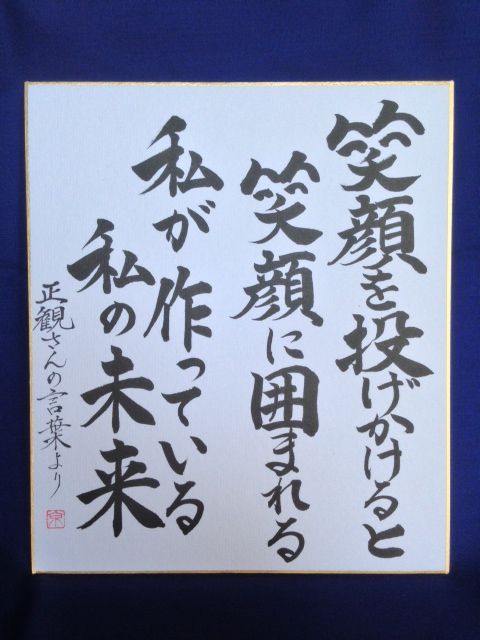 笑顔を投げかけると
笑顔に囲まれる
私が作っている
私の未来
正観さんの言葉より